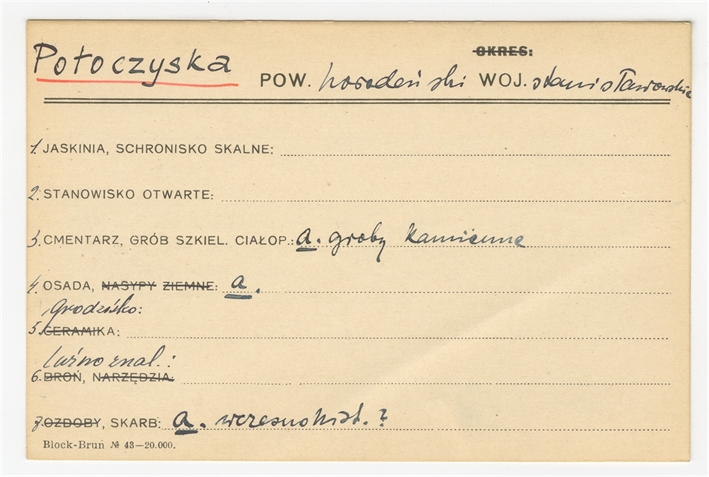 Potoczyska OKRES:
POW. horodeński WOJ. stanisławowskie
1. JASKINIA, SCHRONISKO SKALNE:
2. STANOWISKO OTWARTE:
3. CMENTARZ, GRÓB SZKIEL. CIAŁOP.: a. groby kamienne
4. OSADA, NASYPY ZIEMNE: a.
grodzisko:
5. CERAMIKA:
luźno znal.:
6. BROŃ, NARZĘDZIA:
7. OZDOBY, SKARB: a. wczesnohist. ?
Block-Bruń № 43–20.000.